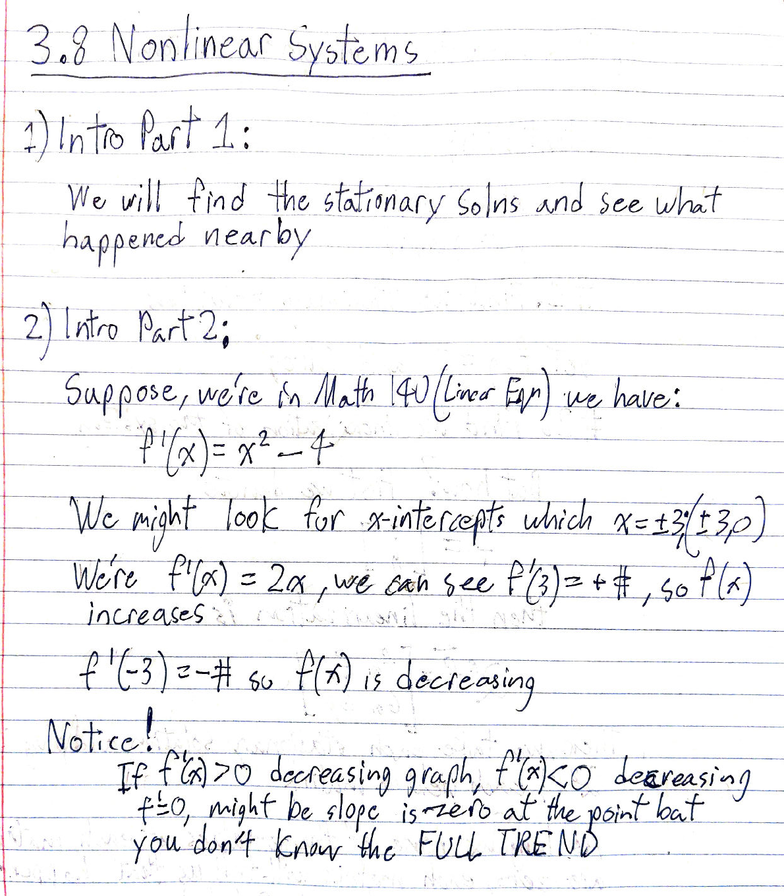 3.8 Nonlinear Systems
1) Intro Part 1:
We will find the stationary solns and see what
happened nearby
2) Intro Part 2;
Suppose, we're in Math 140 (Linear Eqn) we have:
f'(x) = x² - 4
We might look for x-intercepts which x=±3; (±3,0)
We're f'(x) = 2x, we can see f'(3) = +#, so f(x)
increases
f'(-3) = -# so f(x) is decreasing
Notice!
If f'(x)>0 decreasing graph, f'(x)<0 decreasing
f'=0, might be slope is zero at the point bat
you don't know the FULL TREND